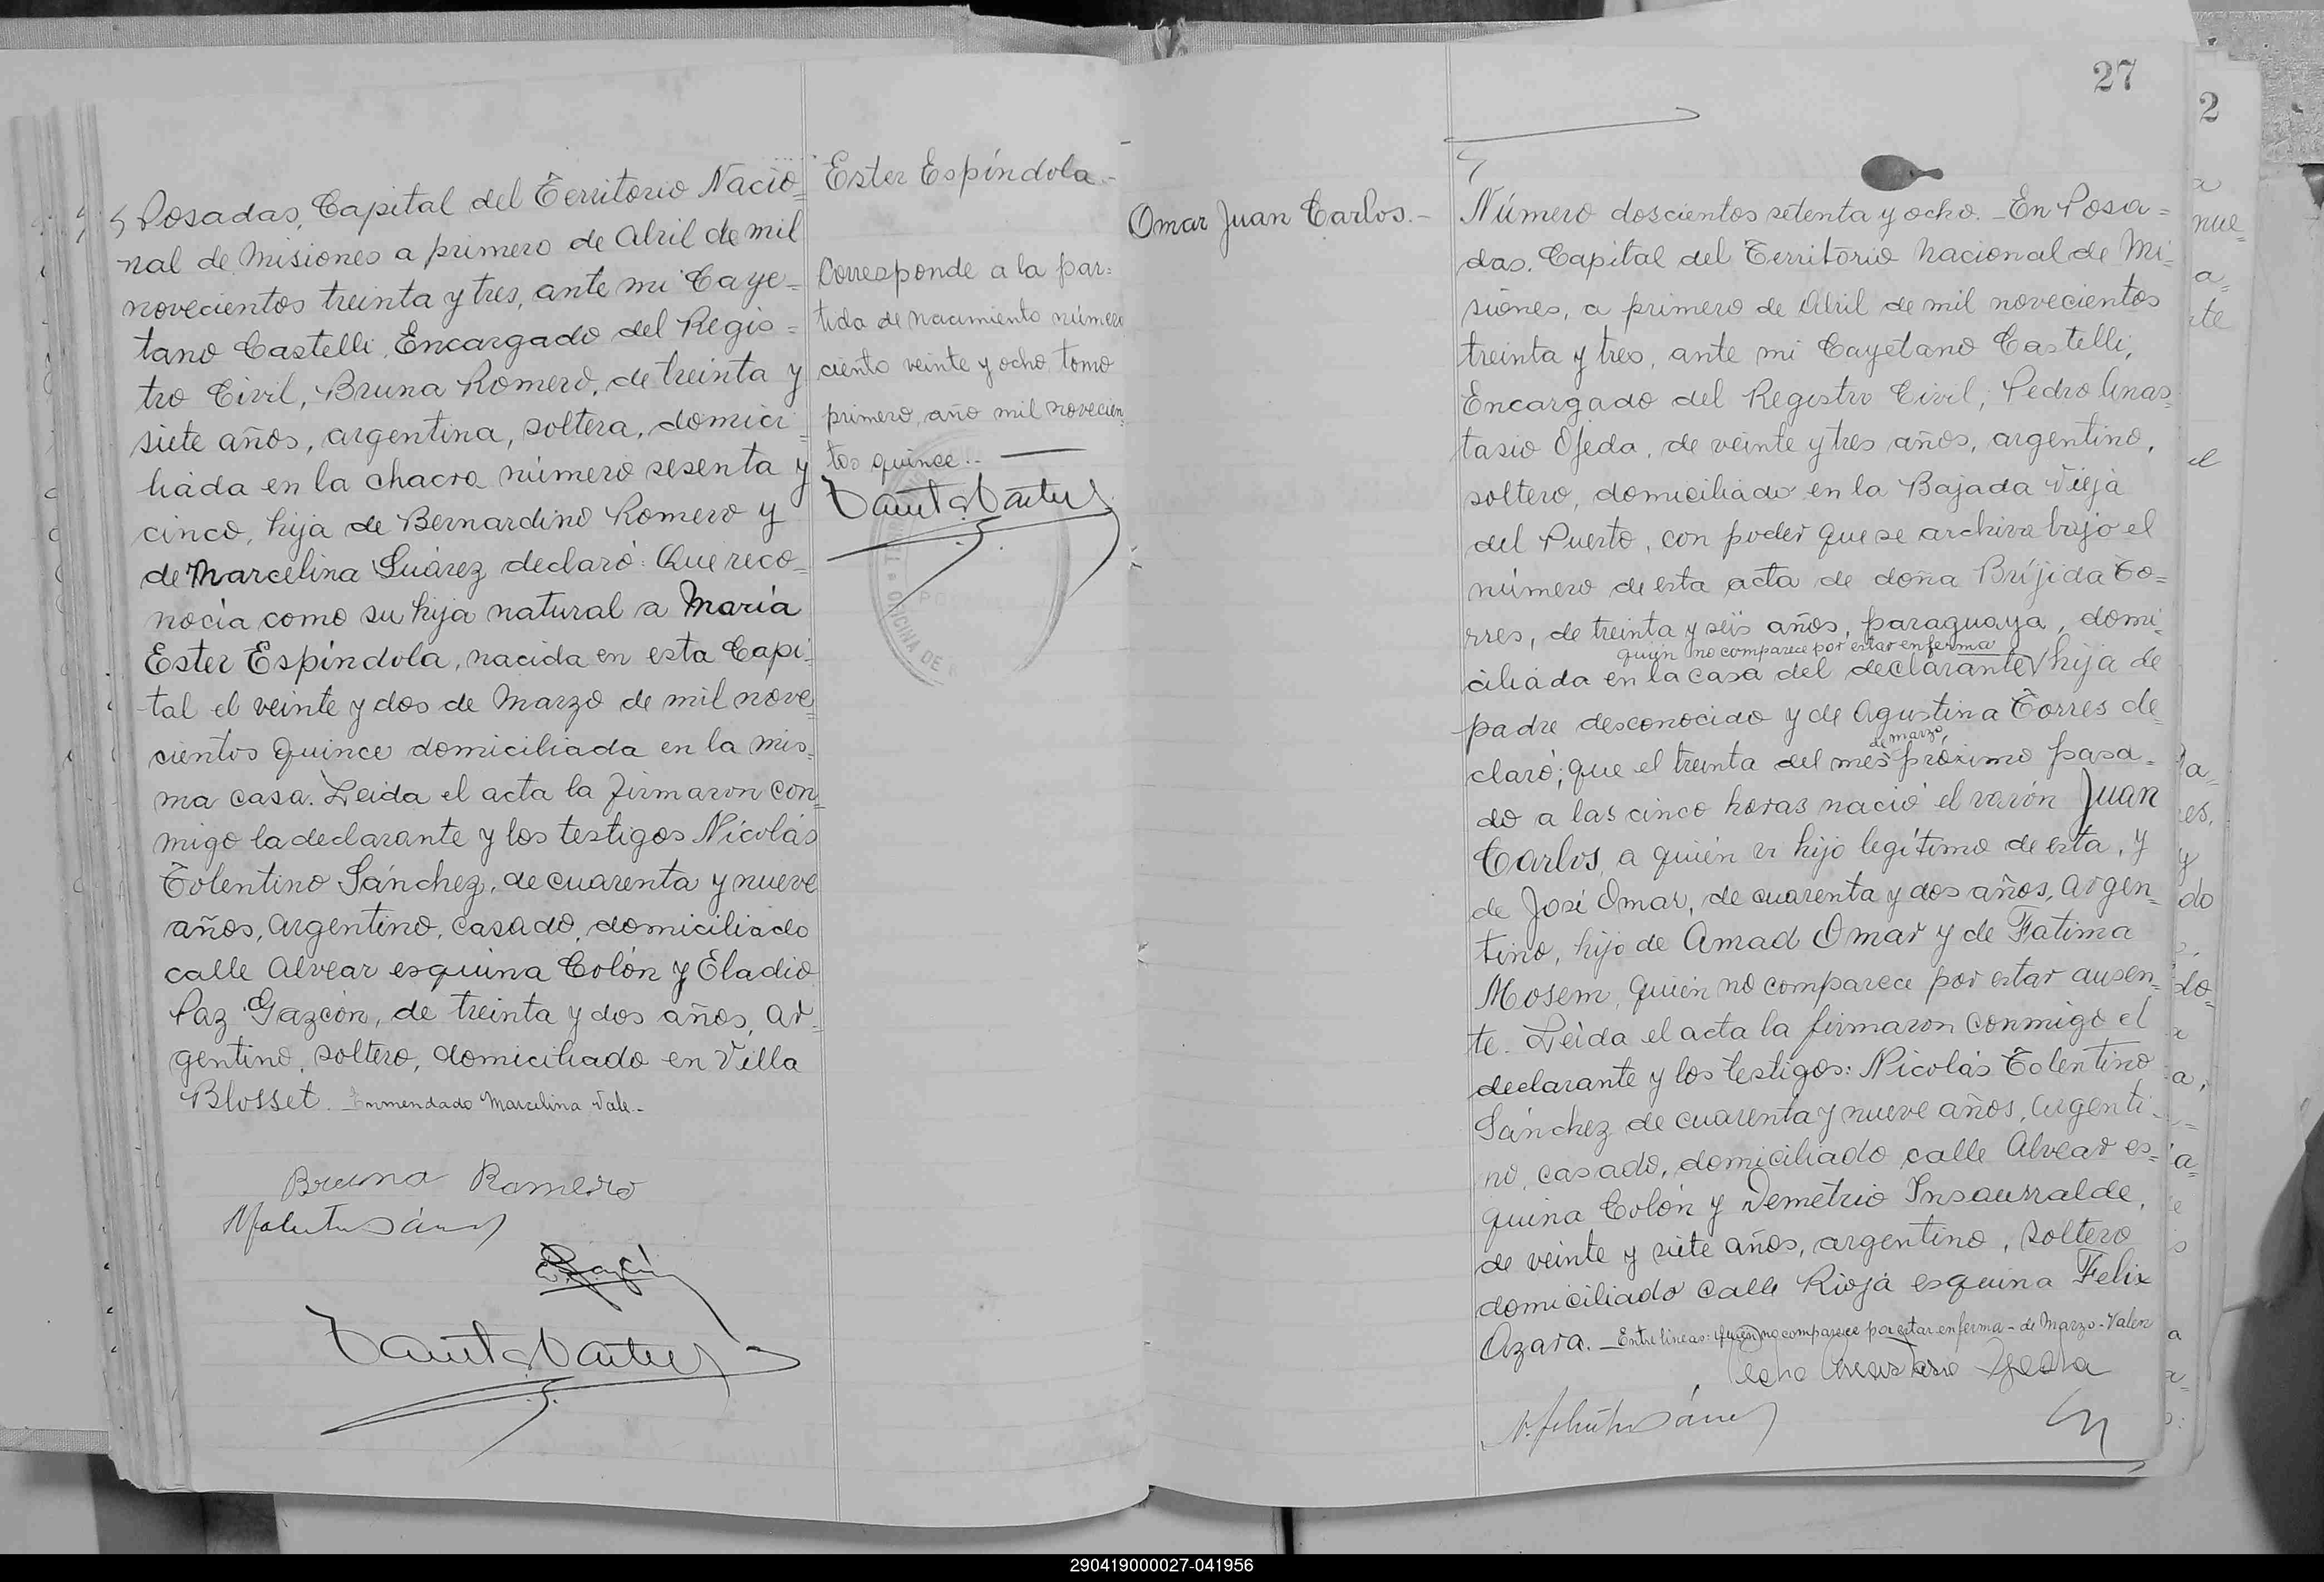 Posadas, Capital del Territorio Nacio=
nal de Misiones a primero de Abril de mil
novecientos treinta y tres, ante mi Caye=
tano Castelli, Encargado del Regis=
tro Civil, Bruna Romero, de treinta y
siete años, argentina, soltera, domici=
liada en la chacra número sesenta y
cinco, hija de Bernardino Romero y
de Marcelina Suárez declaró: Que reco=
nocía como su hija natural a María
Ester Espíndola, nacida en esta Capi=
tal el veinte y dos de Marzo de mil nove=
cientos quince domiciliada en la mis=
ma casa. Leida el acta la firmaron con=
migo la declarante y los testigos Nicolás
Tolentino Sánchez, de cuarenta y nueve
años, argentino, casado, domiciliado
calle Alvear esquina Colón y Eladio
Paz Gazcón, de treinta y dos años, ar=
gentino, soltero, domiciliado en Villa
Blosset. Enmendado Marcelina Vale.-
Bruna Romero
Ester Espíndola.-
Corresponde a la par=
tida de nacimiento número
ciento veinte y ocho, tomo
primero, año mil novecien=
tos quince.-
OFICINA DE
27
Omar Juan Carlos.-
Número doscientos setenta y ocho. - En Posa=
das, Capital del Territorio Nacional de Mi=
siones, a primero de Abril de mil novecientos
treinta y tres, ante mi Cayetano Castelli,
Encargado del Registro Civil; Pedro Anas=
tasio Ojeda, de veinte y tres años, argentino,
soltero, domiciliado en la Bajada Vieja
del Puerto, con poder que se archiva bajo el
número de esta acta de doña Bríjida To=
rres, de treinta y seis años, paraguaya, domi=
quien no comparece por estar enferma
ciliada en la casa del declarante hija de
padre desconocido y de Agustina Torres de=
de marzo,
claró; que el treinta del mes próximo pasa=
do a las cinco horas nació el varón Juan
Carlos, a quién vi hijo legítimo de esta, y
de José Omar, de cuarenta y dos años, argen=
tino, hijo de Amad Omar y de Fatima
Mosem, quién no comparece por estar ausen=
te. Leida el acta la firmaron conmigo el
declarante y los testigos: Nicolás Tolentino
Sánchez de cuarenta y nueve años, argenti=
no, casado, domiciliado calle Alvear es=
quina Colón y Demetrio Insaurralde,
de veinte y siete años, argentino, soltero
domiciliado calle Rioja esquina Felix
Azara. - Entre líneas: quien no comparece por estar enferma - de Marzo - Valen
Pedro Anastasio Ojeda
2
290419000027-041956